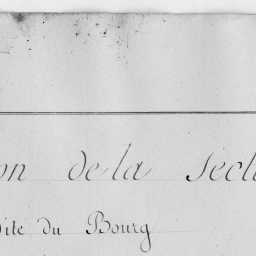 on de la Sect
dite du Bourg